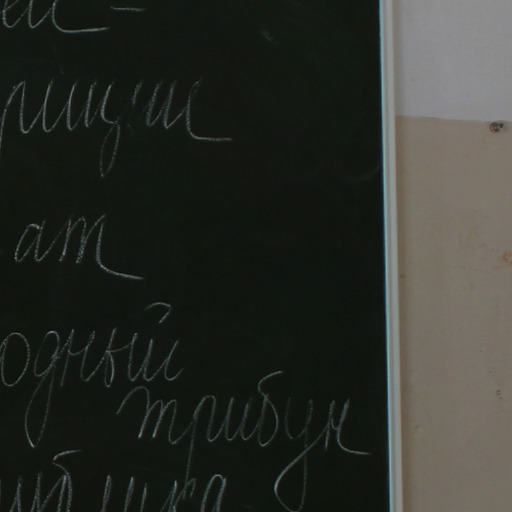 риции
ат
одный
трибун
ублика